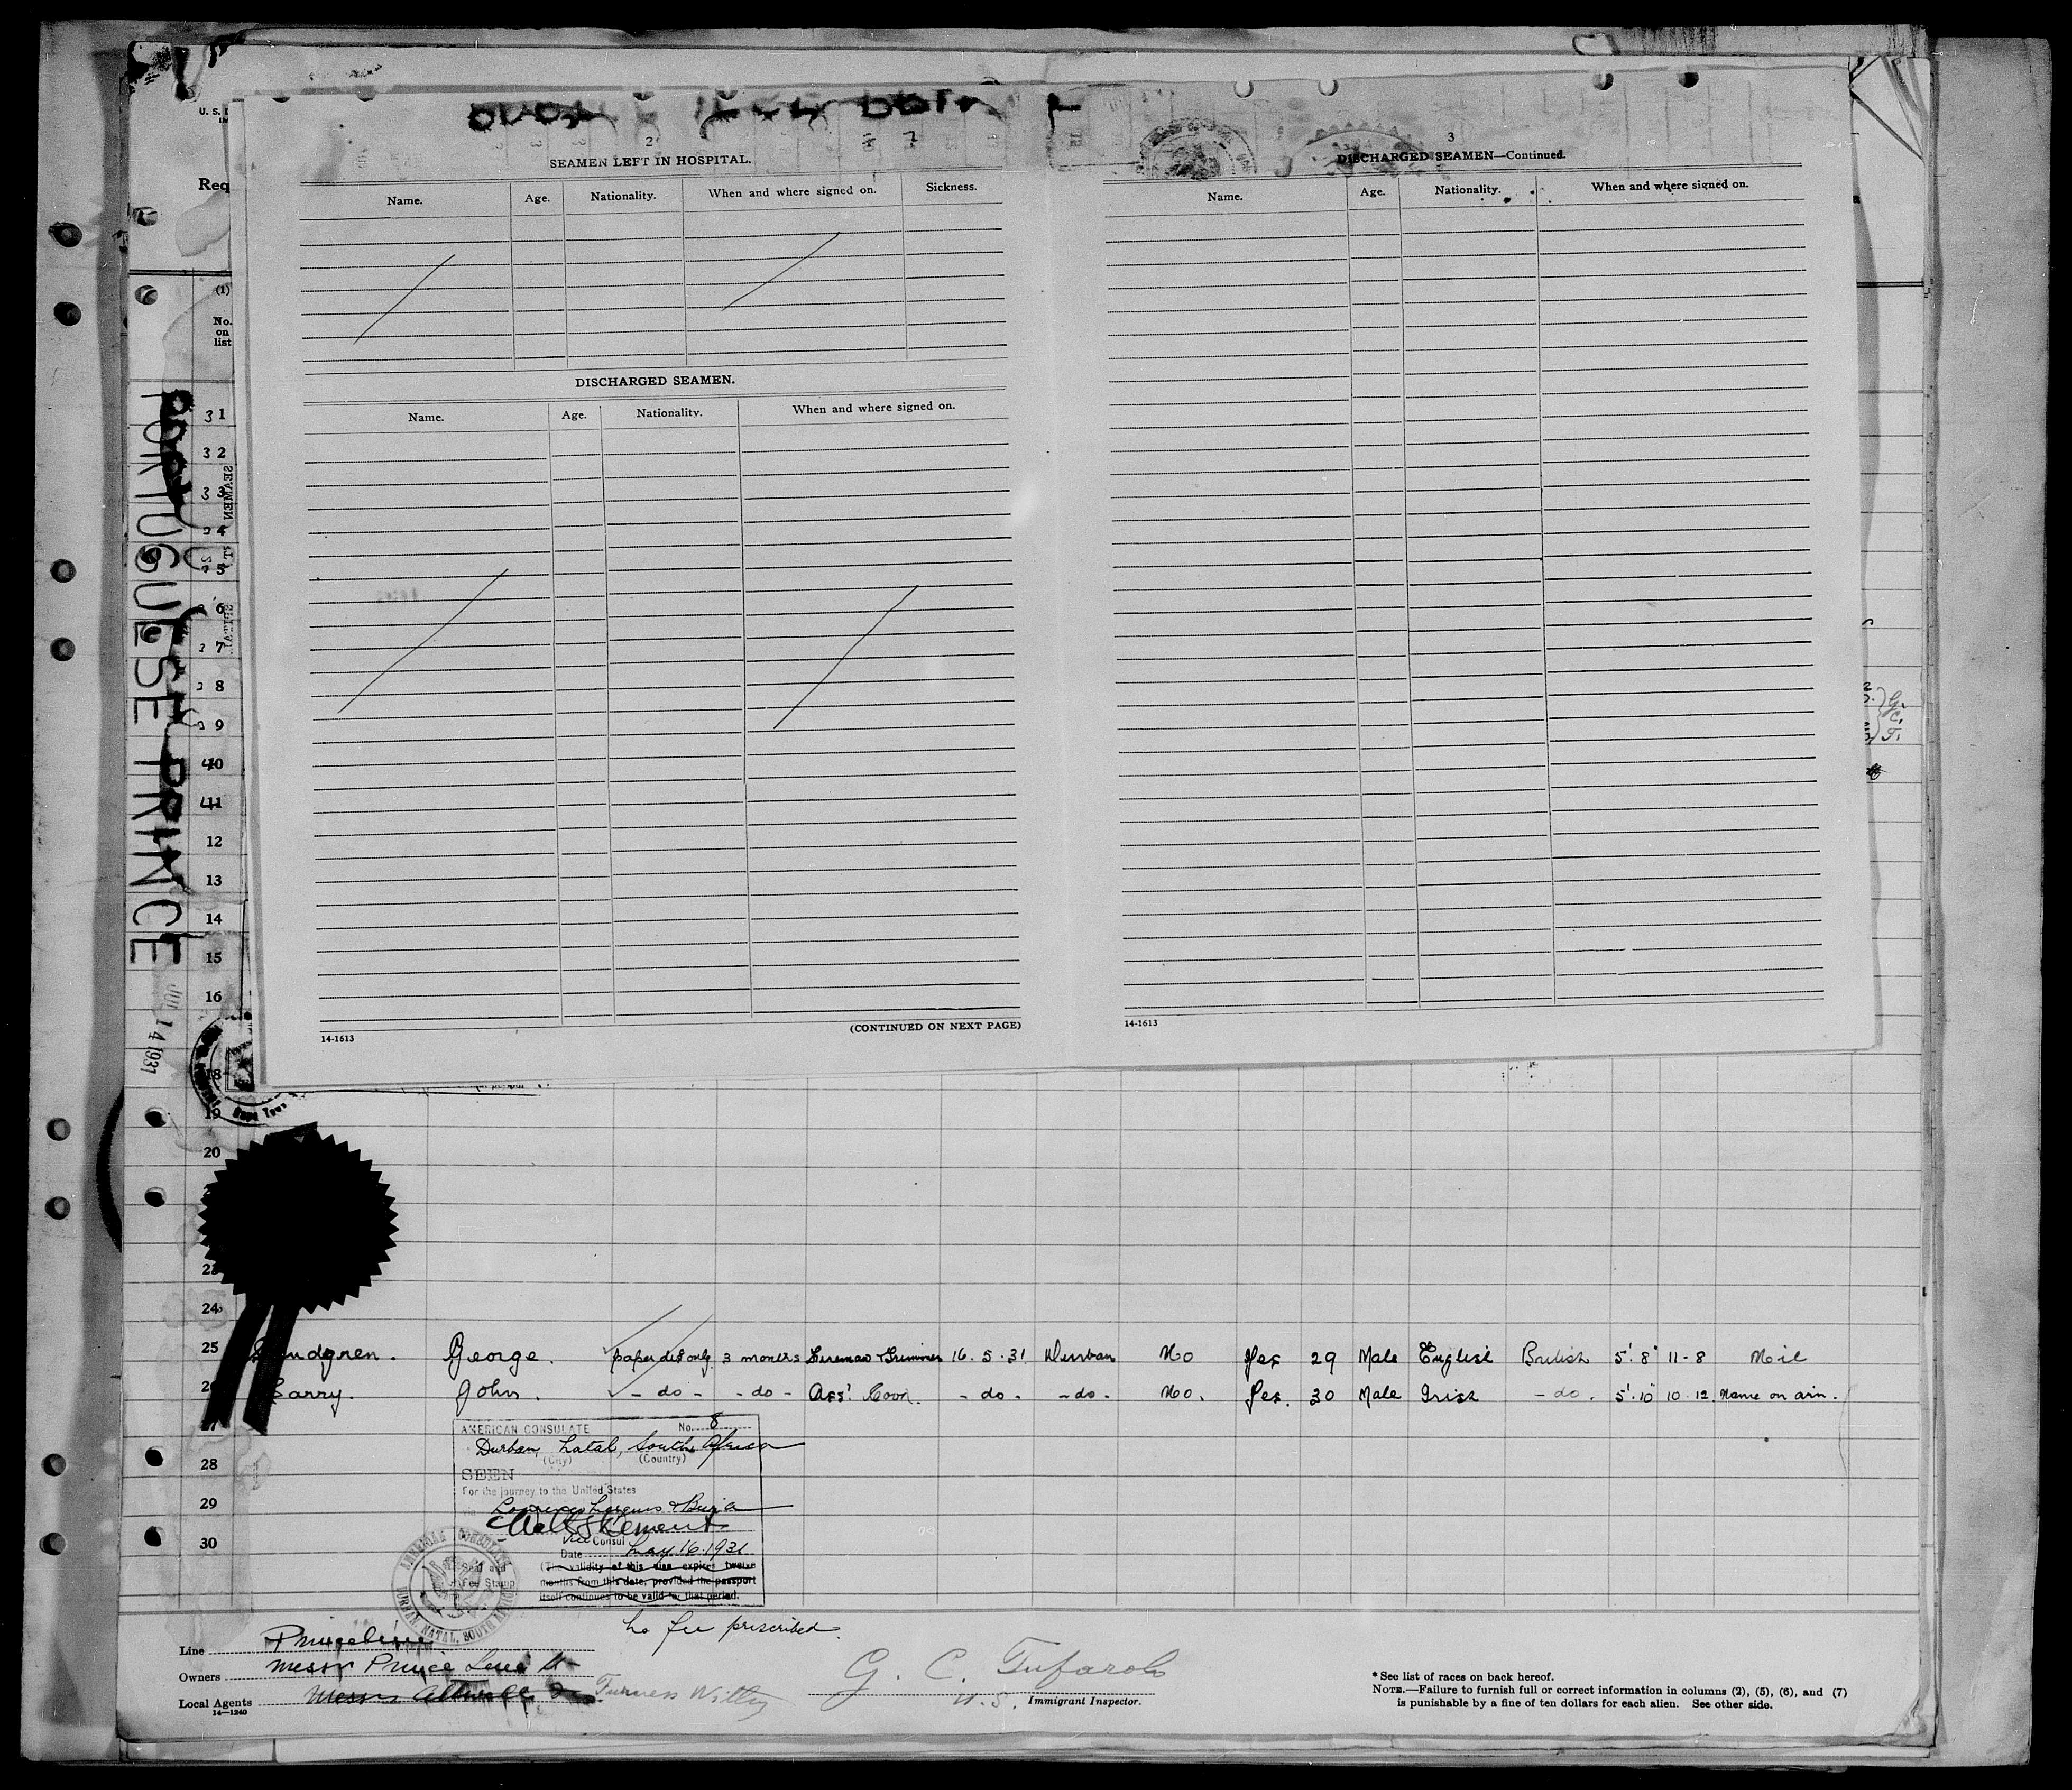 U. S.
Req
2
SEAMEN LEFT IN HOSPITAL.
Name. Age. Nationality. When and where signed on. Sickness.
DISCHARGED SEAMEN.
Name. Age. Nationality. When and where signed on.
14-1613 (CONTINUED ON NEXT PAGE)
3
DISCHARGED SEAMEN—Continued.
Name. Age. Nationality. When and where signed on.
14-1613
PORTUGUESE PRINCE
JUL 14 1931
(1)
No. on list
31
32
33
34
35
36
37
38
39
40
41
12
13
14
15
16
18
19
20
24
25 George. paper del only 3 months Fireman & Trimmer 16. 5. 31 Durban No Yes 29 Male English British 5' 8" 11-8 Nil
26 John. - do - - do - Ass't Cook. - do - - do - No. Yes. 30 Male Irish - do - 5'. 10" 10. 12. Name on arm.
28
29
30
AMERICAN CONSULATE No. 8
Durban, Natal, South Africa
(City) (Country)
SEEN
For the journey to the United States
Lourenco Marques & Beira
Vice Consul
Date May 16. 1931
(The validity of this visa expires twelve
months from this date, provided the passport
itself continues to be valid for that period.
AMERICAN CONSULATE
DURBAN, NATAL, SOUTH AFRICA
Fee Stamp
No fee prescribed.
Line Prince Line
Owners Messrs Prince Line Ld
Local Agents Furness Withy
14—1240
G. C. Tufarolo
U.S. Immigrant Inspector.
* See list of races on back hereof.
NOTE.—Failure to furnish full or correct information in columns (2), (5), (6), and (7)
is punishable by a fine of ten dollars for each alien. See other side.
G.
C.
T.